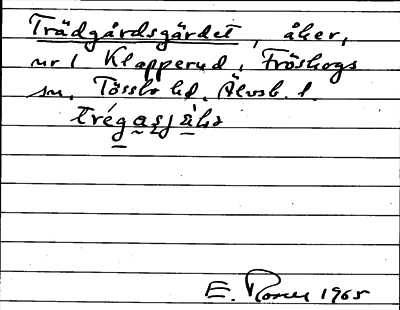 Trädgårdsgärdet, åker,
nr 1 Klapperud, Fröskogs
sn. Tössbo hd. Älvsb. l.
E. Rosen 1965